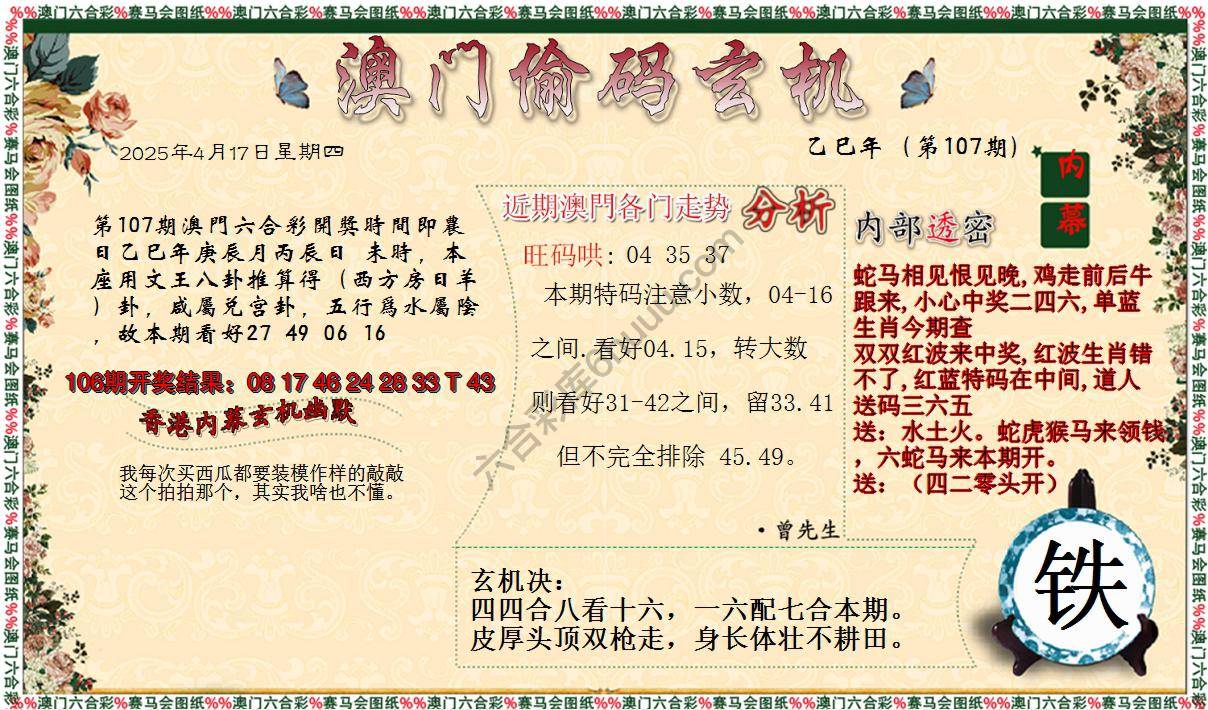 %%澳门六合彩%赛马会图纸%%澳门六合彩%赛马会图纸%%澳门六合彩%赛马会图纸%%澳门六合彩%赛马会图纸%%澳门六合彩%赛马会图纸%%澳门六合彩%赛马会图纸%%
澳门偷码玄机
2025年4月17日星期四
乙巳年（第107期）
内幕
第107期澳門六合彩開獎時間即農
日乙巳年庚辰月丙辰日 未時，本
座用文王八卦推算得（西方房日羊
）卦，咸屬兑宫卦，五行爲水屬陰
，故本期看好27 49 06 16
106期开奖结果：08 17 46 24 26 33 T 43
香港内幕玄机幽默
我每次买西瓜都要装模作样的敲敲
这个拍拍那个，其实我啥也不懂。
近期澳門各门走势 分析
旺码哄: 04 35 37
本期特码注意小数，04-16
之间.看好04.15，转大数
则看好31-42之间，留33.41
但不完全排除 45.49。
·曾先生
内部透密
蛇马相见恨见晚,鸡走前后牛
跟来,小心中奖二四六,单蓝
生肖今期查
双双红波来中奖,红波生肖错
不了,红蓝特码在中间,道人
送码三六五
送：水土火。蛇虎猴马来领钱
，六蛇马来本期开。
送：（四二零头开）
玄机决：
四四合八看十六，一六配七合本期。
皮厚头顶双枪走，身长体壮不耕田。
铁
%%澳门六合彩%赛马会图纸%%澳门六合彩%赛马会图纸%%澳门六合彩%赛马会图纸%%澳门六合彩%赛马会图纸%%澳门六合彩%赛马会图纸%%澳门六合彩%赛马会图纸%%